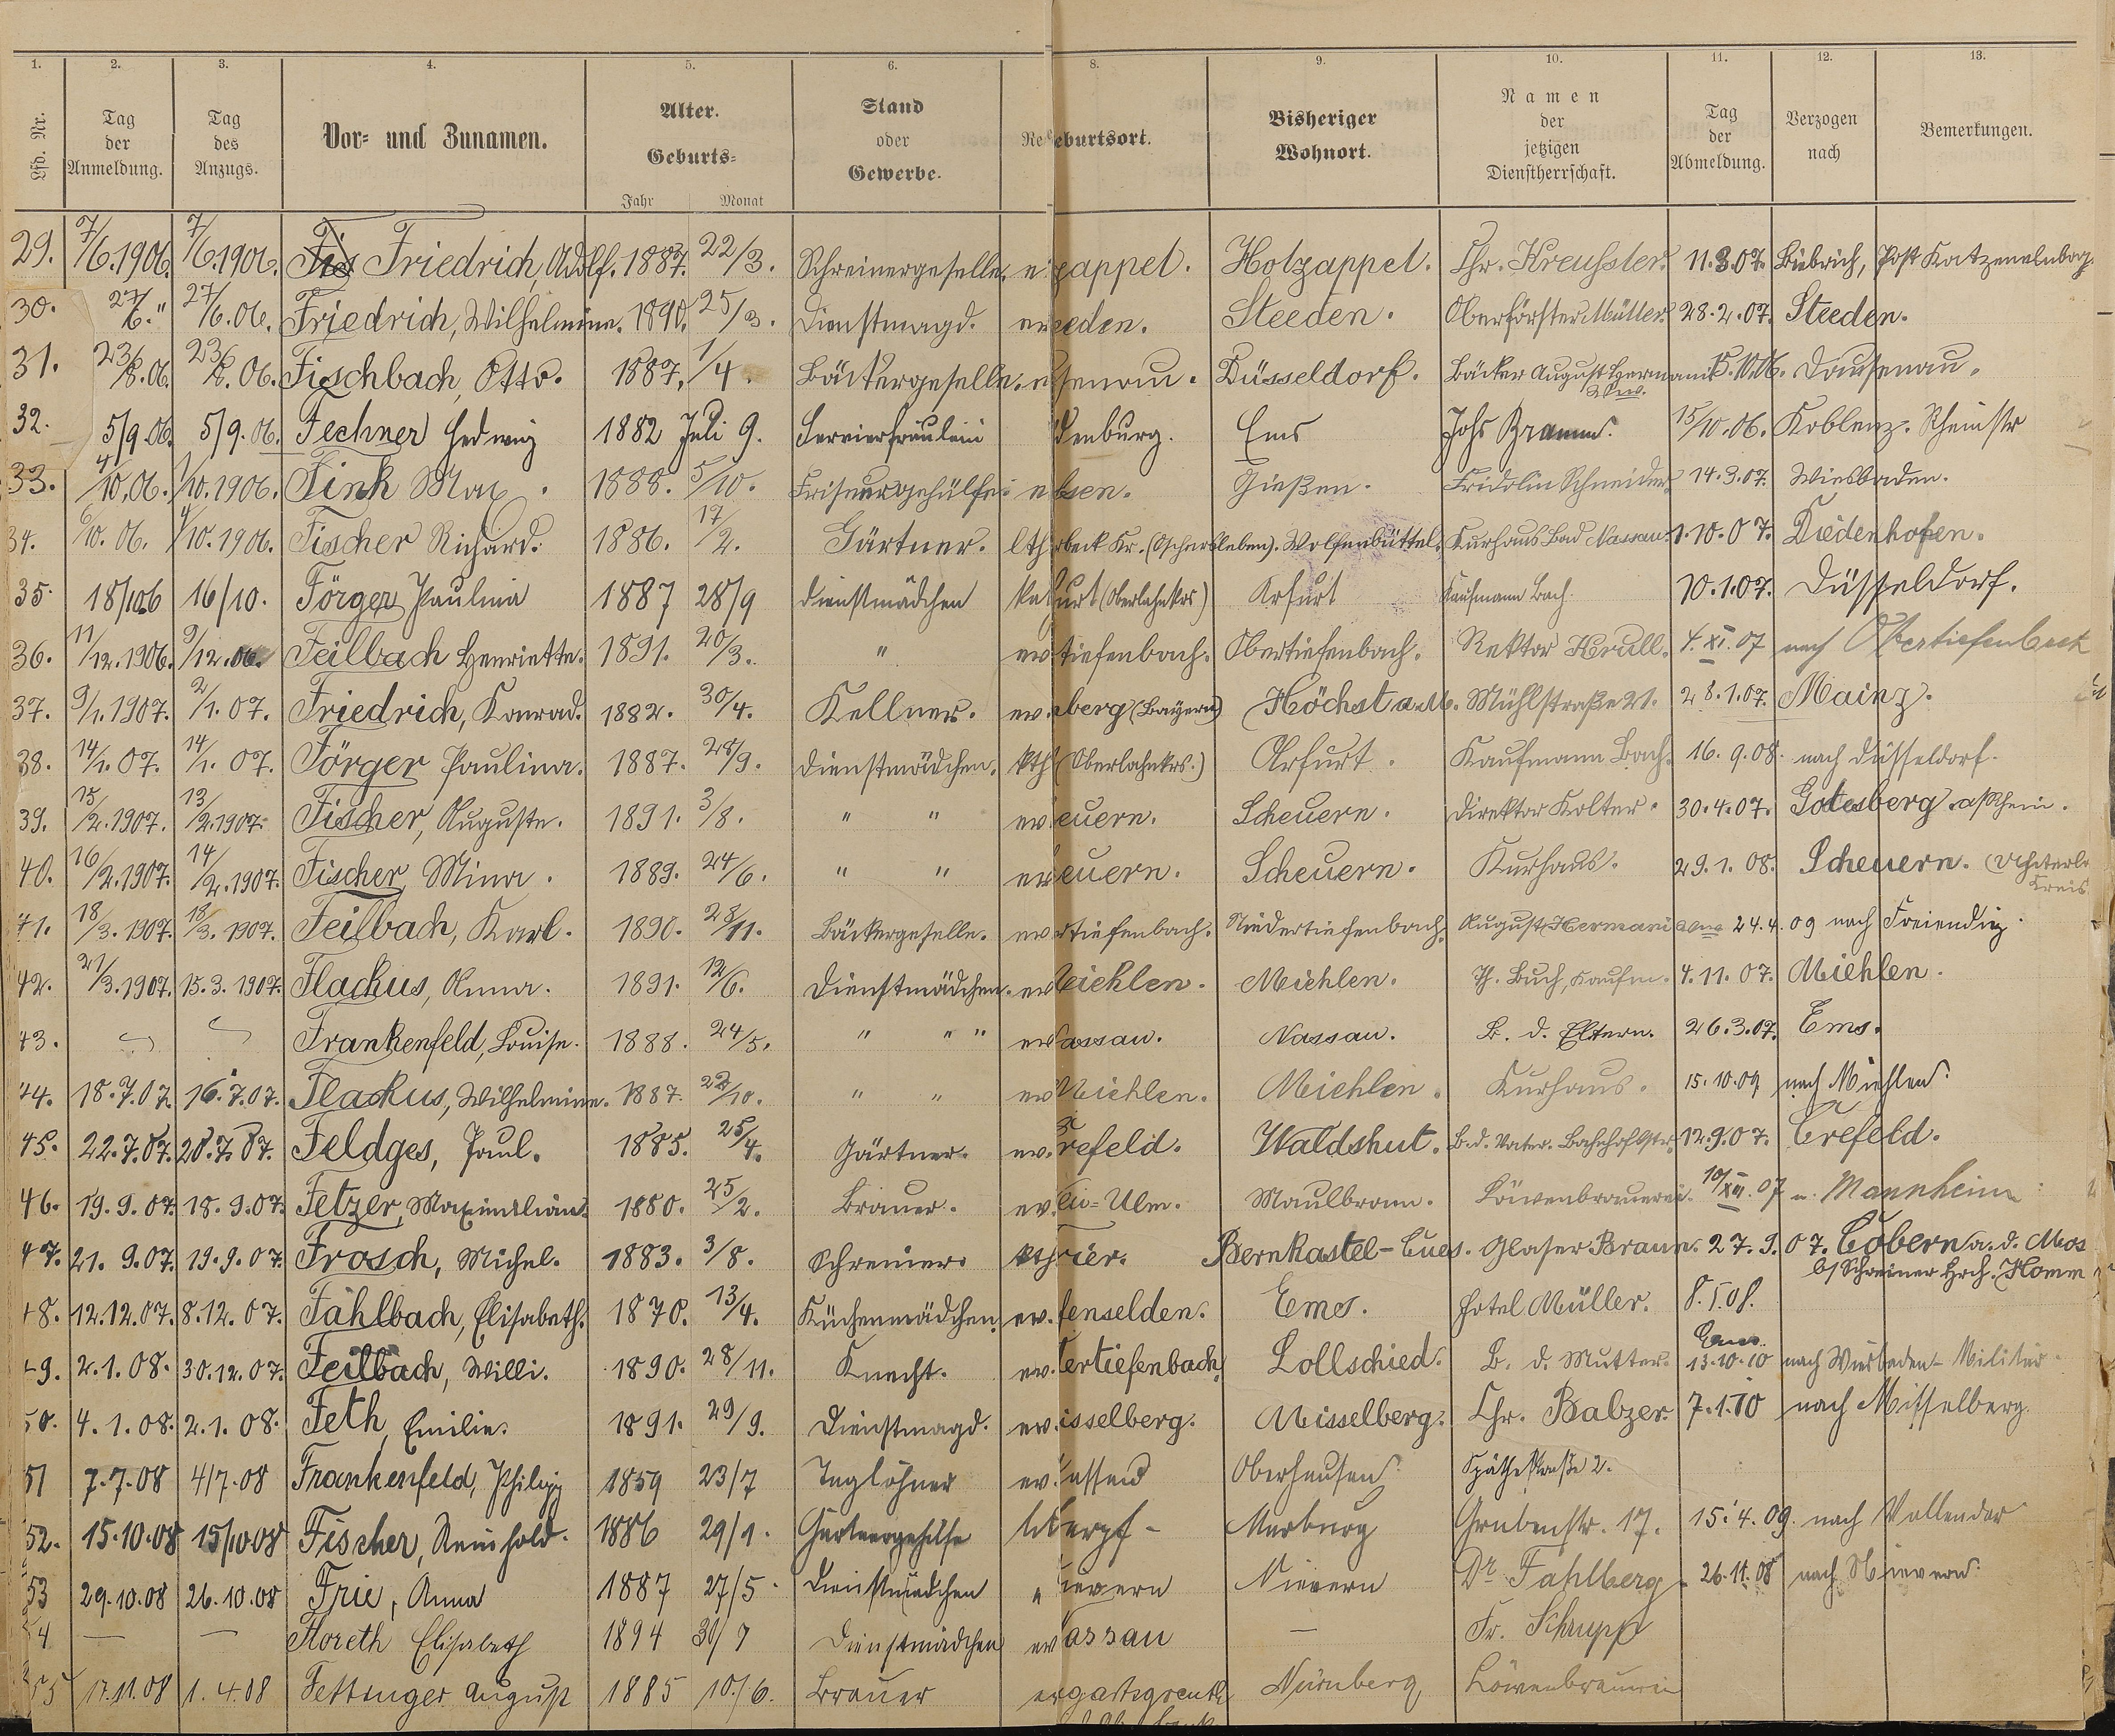 1. 2. 3. 4. 5. 6. 8. 9. 10. 11. 12. 13.
Lfd. Nr. Tag der Anmeldung. Tag des Anzugs. Vor= und Zunamen. Alter. Geburts= Fahr Monat Stand oder Gewerbe. Re eburtsort. Bisheriger Wohnort. Namen der jetzigen Dienstherrschaft. Tag der Abmeldung. Verzogen nach Bemerkungen.
29. 7/6.1906. 7/6.1906. Friedrich, Adolf. 1887. 22/3. Schreinergeselle. zappel. Holzappel. Chr. Kreussler. 11.3.07. Biebrich, Post Katzenelnbog.
30. 27/6." 27/6.06. Friedrich, Wilhelmine. 1890. 25/3. Dienstmagd. eeden. Steeden. Oberförster Müller. 28.2.07. Steeden.
31. 23/8.06. 23/8.06. Fischbach, Otto. 1887. 1/4. Bäckergeselle. senau. Düsseldorf. Bäcker August Hermani Dausenau.
32. 5/9.06. 5/9.06. Fechner Hedwig 1882 Juli 9. Servierfräulein denburg. Ems Johs Braun. 15/10.06. Koblenz. Rheinstr
33. 4/10.06. 1/10.1906. Fink Max. 1888. 5/10. Friseurgehülfe. sen. Gießen. Fridolin Schneider 14.3.07. Wiesbaden.
34. 6/10.06. 1/10.1906. Fischer Richard. 1886. 17/2. Gärtner. lth beck Kr. (Oschersleben). Wolfenbüttel. Kurhaus Bad Nassau. 1.10.07. Diedenhofen.
35. 18/10 06 16/10. Förger Paulina 1887 28/9 Dienstmädchen kath furt (Oberlahnkrs) Arfurt Kaufmann Bach. 10.1.07. Düsseldorf.
36. 11/12.1906. 9/12.06. Feilbach Henriette. 1891. 20/3. " ev tiefenbach. Obertiefenbach. Rektor Krull. 4.XI.07 nach Obertiefenbach
37. 9/1.1907. 2/1.07. Friedrich, Konrad. 1882. 30/4. Kellner. ev. berg (Bayern) Höchst a.M. Mühlstraße 21. 28.1.07. Mainz.
38. 14/1.07. 14/1.07. Förger Paulina. 1887. 28/9. Dienstmädchen. kth (Oberlahnkrs.) Arfurt. Kaufmann Bach. 16.9.08. nach Düsseldorf.
39. 15/2.1907. 13/2.1907. Fischer, Auguste. 1891. 3/8. " " ev euern. Scheuern. Direktor Kolter. 30.4.07. Gotesberg a/Rhein.
40. 16/2.1907. 14/2.1907. Fischer, Mina. 1889. 24/6. " " ev euern. Scheuern. Kurhaus. 29.1.08. Scheuern. Kreis
41. 18/3.1907. 18/3.1907. Feilbach, Karl. 1890. 28/11. Bäckergeselle. ev rtiefenbach. Niedertiefenbach. August Hermani 24.4.09 nach Freiendiez.
42. 21/3.1907. 15.3.1907. Flackus, Anna. 1891. 12/6. Dienstmädchen. ev Miehlen. Miehlen. Th. Buch, Kaufm. 4.11.07. Miehlen.
43. Frankenfeld, Louise. 1888. 24/5. " " " ev assau. Nassau. B. d. Eltern. 26.3.07. Ems.
44. 18.7.07. 16.7.07. Flackus, Wilhelmine. 1887. 22/10. " " ev Miehlen. Miehlen. Kurhaus. 15.10.09 nach Miehlen.
45. 22.7.07. 20.7.07. Feldges, Paul. 1885. 25/4. Gärtner. ev. refeld. Waldshut. B.d. Vater. Bahnhofstr. 12.9.07. Crefeld.
46. 19.9.07. 18.9.07. Fetzer, Maximilian. 1880. 25/2. Brauer. ev. Ulm. Maulbronn. Löwenbrauerei. 10/XII.07 n. Mannheim
47. 21.9.07. 19.9.07. Frosch, Michel. 1883. 3/8. Schreiner. kth rier. Bernkastel-Cues. Glaser Braun. 27.9.07. Cobern a. d. Mos
b/Schreiner Hrch. Homm
48. 12.12.07. 8.12.07. Fahlbach, Elisabeth. 1870. 13/4. Küchenmädchen. ev. fenselden. Ems. Hotel Müller. 8.I.08. Ems
49. 2.1.08. 30.12.07. Feilbach, Willi. 1890. 28/11. Knecht. ev. ertiefenbach. Lollschied. B. d. Mutter. 13.10.10 nach Wiesbaden - Militär
50. 4.1.08. 2.1.08. Feth, Emilie. 1891. 29/9. Dienstmagd. ev. isselberg. Misselberg. Chr. Balzer. 7.1.10 nach Misselberg.
51 7.7.08 4/7.08 Frankenfeld, Philipp 1859 23/7 Taglöhner ev. assau Oberhausen Späthestraße 2.
52. 15.10.08 15/10 08 Fischer, Reinhold. 1886 29/1. Gärtnergehilfe Marburg Grubenstr. 17. 15.4.09. nach Vallendar
53 29.10.08 26.10.08 Frie, Anna 1887 27/5. Dienstmädchen " ievern Nievern Dr Fahlberg 26.11.08 nach Nievern.
54 — — Floreth Elisabeth 1894 30/7 Dienstmädchen ev assau — Fr. Schrupp
55 17.11.08 1.4.08 Fettinger August 1885 10./6. Brauer Nürnberg Löwenbrauerei